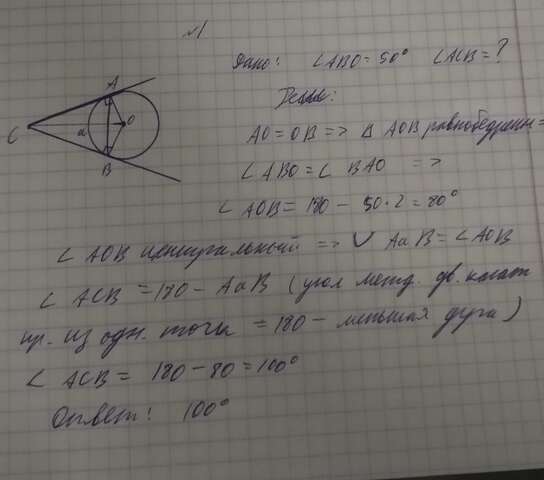 №1
Дано: ∠ABO = 50° ∠ACB = ?
Решен:
AO = OB => Δ AOB равнобедренн =
∠ABO = ∠ BAO =>
∠ AOB = 180 - 50·2 = 80°
∠ AOB центральный => ∪ AaB = ∠AOB
∠ ACB = 180 - AaB (угол межд. дв. касат
пр. из одн. точки = 180 - меньшая дуга)
∠ ACB = 180 - 80 = 100°
Ответ: 100°
A
C
a
O
B